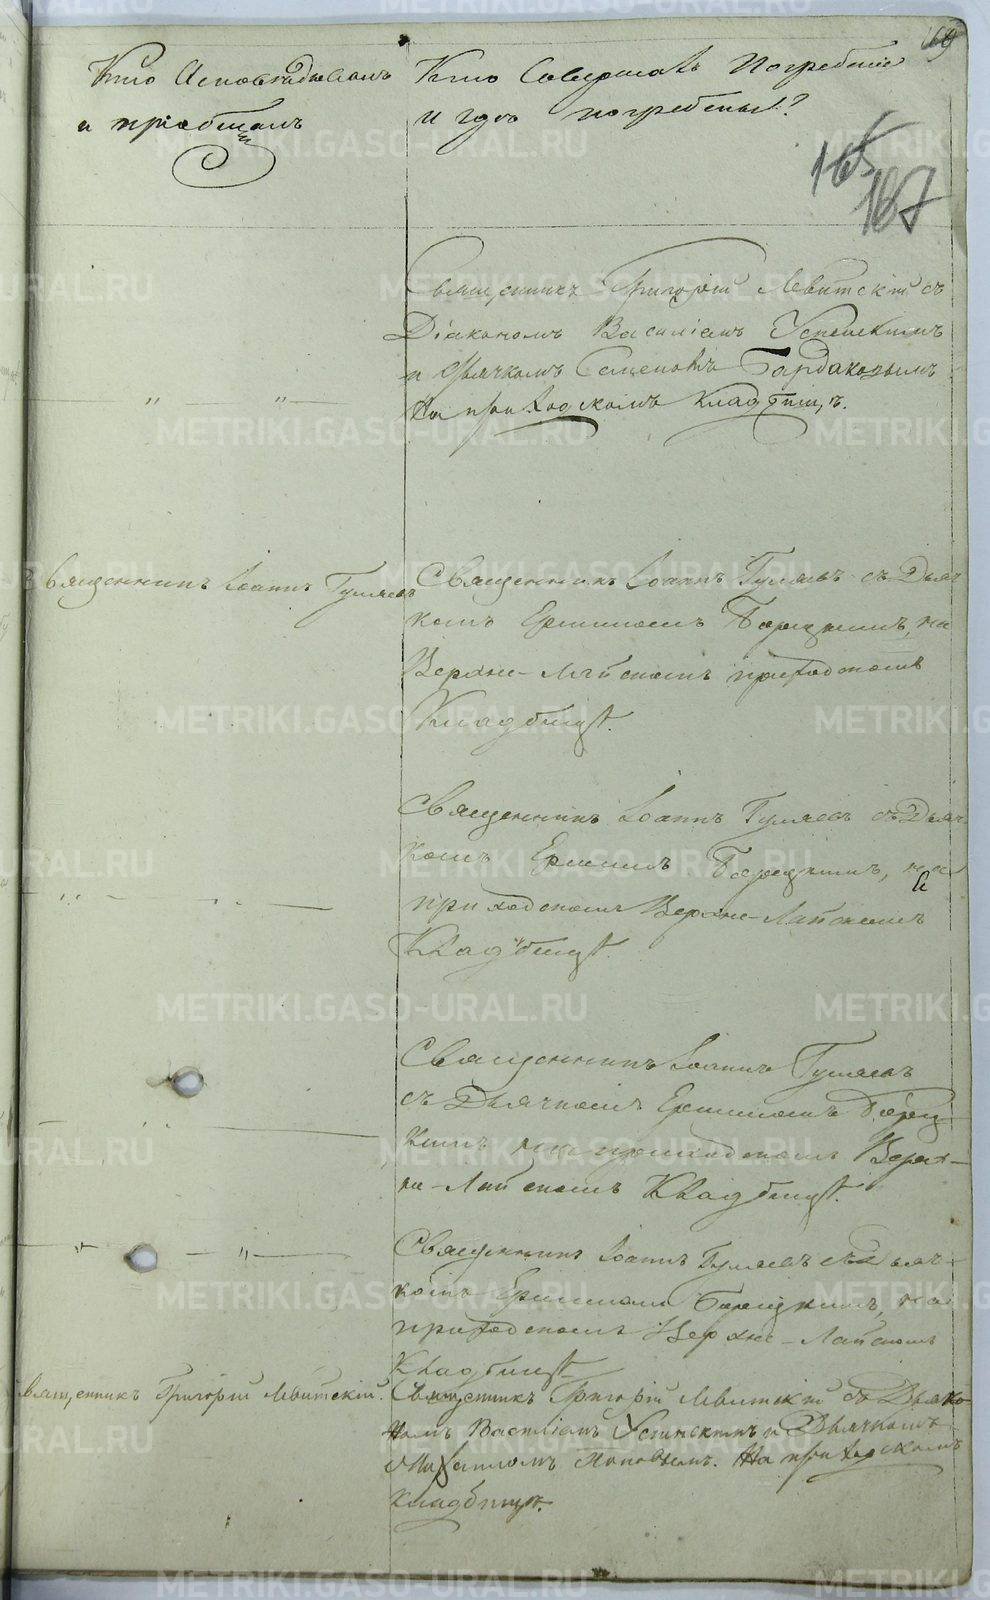 169
Кто Исповѣдывалъ
и пріобщалъ
Кто Совершалъ Погребеніе
и гдѣ погребены?
165
167
Священникъ Григорій Левитскій съ
Діакономъ Василіемъ Успенскимъ
и дьячкомъ Бардаковымъ
на приходскомъ кладбищѣ.
Священникъ Іоаннъ Гуляевъ
Священникъ Іоаннъ Гуляевъ съ Дьяч
комъ на
Верхне-Лайскомъ приходскомъ
Кладбищѣ.
Священникъ Іоаннъ Гуляевъ съ Дьяч
комъ на
приходскомъ Верхне-Лайскомъ
Кладбищѣ.
Священникъ Іоаннъ Гуляевъ
съ Дьячкомъ
кимъ на приходскомъ Верх-
не-Лайскомъ Кладбищѣ.
Священникъ Іоаннъ Гуляевъ съ Дьяч-
комъ на
приходскомъ Верхне-Лайскомъ
Кладбищѣ
Священникъ Григорій Левитскій.
Священникъ Григорій Левитскій съ Діако-
номъ Василіемъ Успенскимъ и Дьячкомъ
Михаиломъ Поповымъ. На приходскомъ
кладбищѣ.
METRIKI.GASO-URAL.RU